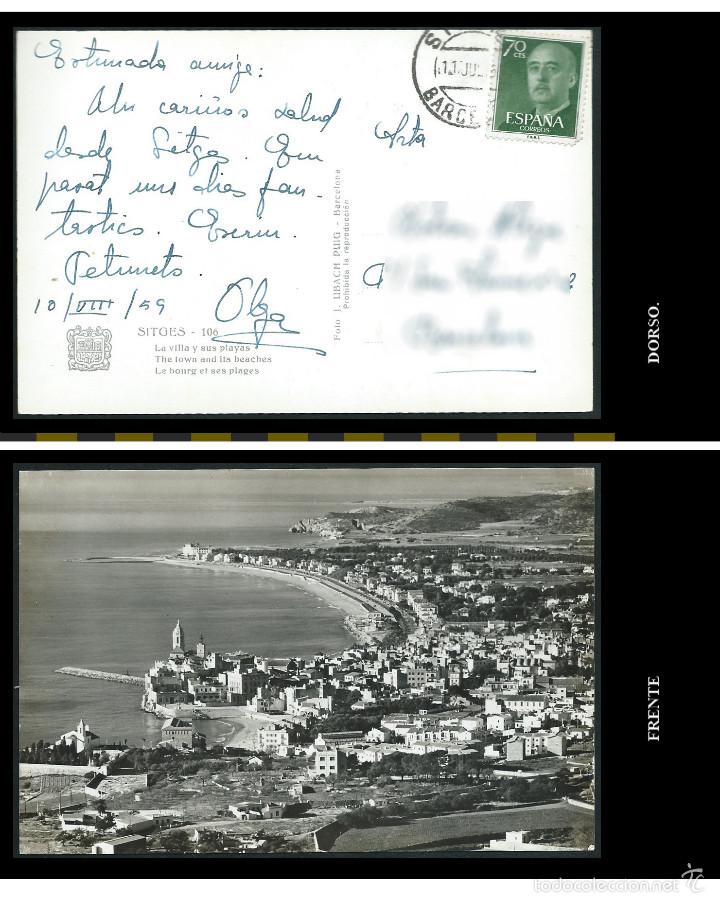 Estimada amiga:
Un cariños salud
desde Sitges. Em
pasat uns dies fan-
tastics.
Petunets.
10/VIII/59
Olga
SITGES - 106
La villa y sus playas
The town and its beaches
Le bourg et ses plages
Foto J. UBACH PUIG - Barcelona
Prohibida la reproducción
11 JUL
BARCE
70
CTS
ESPAÑA
CORREOS
Srta
DORSO.
FRENTE
todocoleccion.net